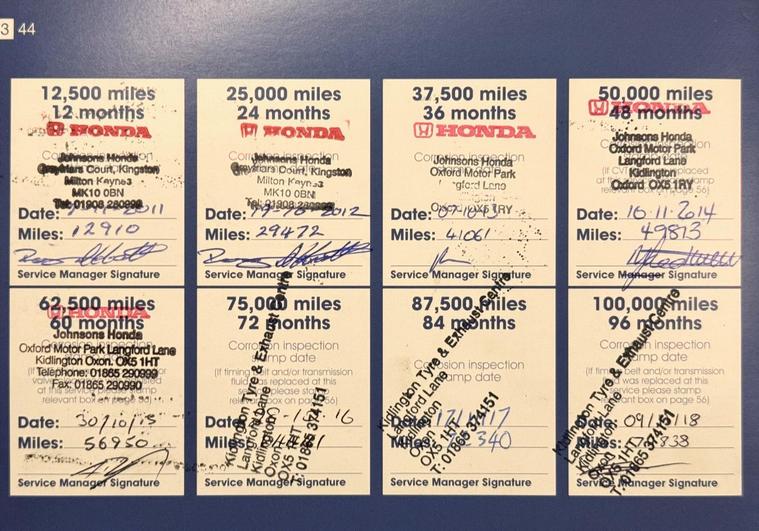 3 44
12,500 miles
12 months
HONDA
Johnsons Honda
Court, Kingston
Milton Keynes
MK10 0BN
Tel: 01908 280999
Date: 2011
Miles: 12910
Service Manager Signature
25,000 miles
24 months
HONDA
Corrosion inspection
Johnsons Honda
Court, Kingston
Milton Keynes
MK10 0BN
Tel: 01908 280999
Date: 2012
Miles: 29472
Service Manager Signature
37,500 miles
36 months
HONDA
Corrosion inspection
Johnsons Honda
Oxford Motor Park
Langford Lane
Date:
Miles: 41061
Service Manager Signature
50,000 miles
48 months
HONDA
Johnsons Honda
Oxford Motor Park
Langford Lane
Kidlington
Oxford OX5 1RY
Date: 10.11.2014
Miles: 49813
Service Manager Signature
62,500 miles
60 months
HONDA
Johnsons Honda
Oxford Motor Park Langford Lane
Kidlington Oxon. OX5 1HT
Telephone: 01865 290999
Fax: 01865 290990
Date: 30/10/15
Miles: 56950
Service Manager Signature
75,000 miles
72 months
Corrosion inspection
stamp date
Kidlington Tyre & Exhaust Centre
Langford Lane
Kidlington
Oxon
OX5 1HT
T: 01865 374151
Date: 16
Miles:
Service Manager Signature
87,500 miles
84 months
Corrosion inspection
stamp date
Kidlington Tyre & Exhaust Centre
Langford Lane
Kidlington
Oxon
OX5 1HT
T: 01865 374151
Date: 17
Miles: 340
Service Manager Signature
100,000 miles
96 months
Corrosion inspection
stamp date
(If timing belt and/or transmission
fluid was replaced at
this service please stamp
relevant box on page 56)
Kidlington Tyre & Exhaust Centre
Langford Lane
Kidlington
Oxon
OX5 1HT
T: 01865 374151
Date: 18
Miles: 838
Service Manager Signature